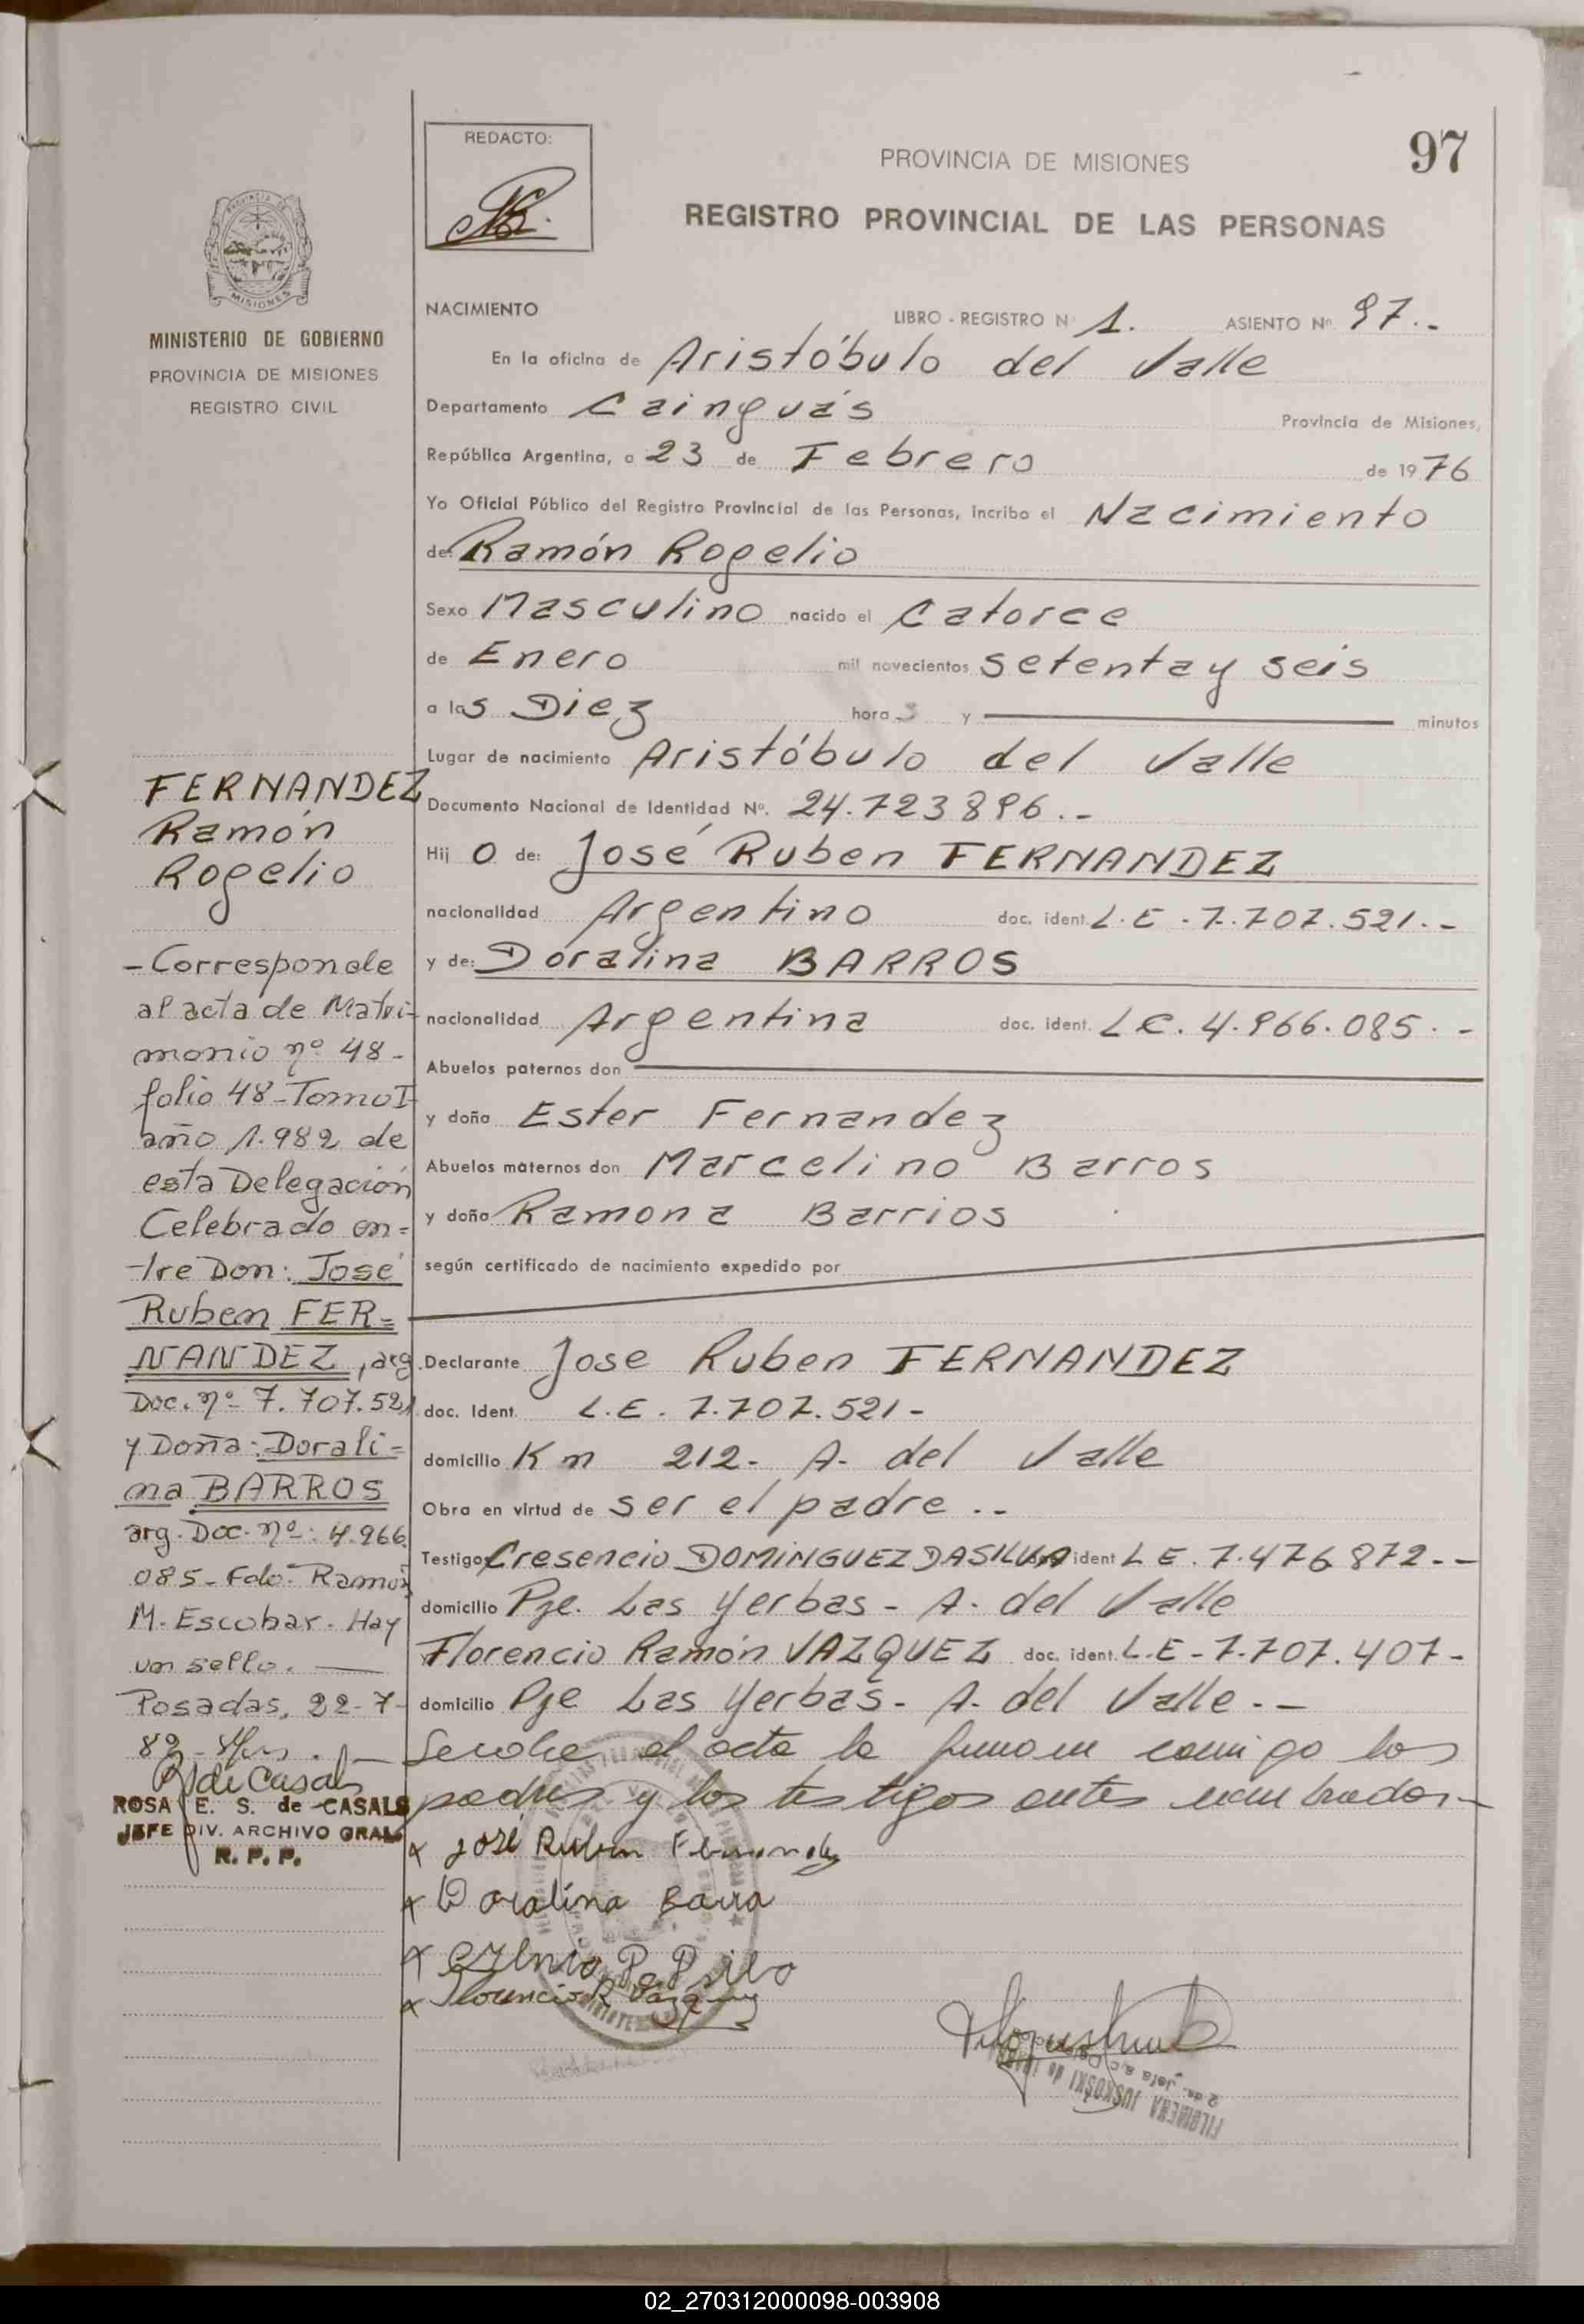 97
REDACTO:
PROVINCIA DE MISIONES
REGISTRO PROVINCIAL DE LAS PERSONAS
MISIONES
MINISTERIO DE GOBIERNO
PROVINCIA DE MISIONES
REGISTRO CIVIL
NACIMIENTO LIBRO - REGISTRO Nº 1. ASIENTO Nº 97.-
En la oficina de Aristóbulo del Valle
Departamento Cainguás Provincia de Misiones,
República Argentina, a 23 de Febrero de 1976
Yo Oficial Público del Registro Provincial de las Personas, incribo el Nacimiento
de: Ramón Rogelio
Sexo Masculino nacido el Catorce
de Enero mil novecientos setenta y seis
a las Diez horas y minutos
Lugar de nacimiento Aristóbulo del Valle
Documento Nacional de Identidad Nº. 24.723896.-
Hijo de: José Ruben FERNANDEZ
nacionalidad Argentino doc. ident. L.E - 7.707.521.-
y de: Doralina BARROS
nacionalidad Argentina doc. ident. L C. 4.966.085. -
Abuelos paternos don
y doña Ester Fernandez
Abuelos maternos don Marcelino Barros
y doña Ramona Barrios
según certificado de nacimiento expedido por
Declarante Jose Ruben FERNANDEZ
doc. Ident. L.E. 7.707.521-
domicilio Km 212- A- del Valle
Obra en virtud de ser el padre.--
Testigos Cresencio DOMINGUEZ DASILVA ident L E. 7.476872--
domicilio Pje. Las Yerbas - A- del Valle
Florencio Ramón VAZQUEZ doc. ident. L.E - 7.707.407-
domicilio Pje Las Yerbas- A- del Valle.--
el acta la firman conmigo los
padres y los testigos antes nombrados.-
x José Ruben Fernandez
x Doralina Barro
x
x Florencio R Vazquez
FILOMENA JUSKOSKI de
FERNANDEZ
Ramón
Rogelio
- Corresponde
al acta de Matri-
monio nº 48-
folio 48-Tomo I
año 1.982 de
esta Delegación
Celebrado en=
tre Don: José
Ruben FER=
NANDEZ, arg.
Doc. nº- 7.707.521
y Doña: Dorali=
na BARROS
arg. Doc. nº: 4.966.
085- Fdo: Ramón
M. Escobar. Hay
un sello.
Posadas, 22-7-
82-
R S de Casals
ROSA E. S. de CASALS
JEFE DIV. ARCHIVO GRAL
R. P. P.
02_270312000098-003908